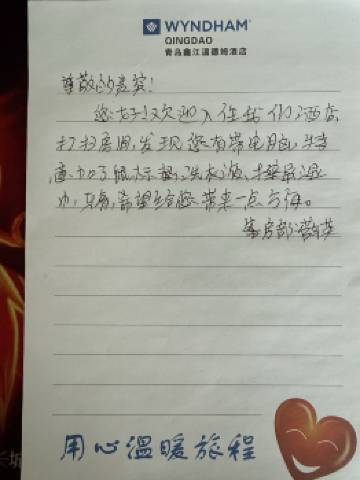 WYNDHAM
QINGDAO
青岛鑫江温德姆酒店
尊敬的贵宾！
您好！欢迎入住我们酒店
打扫房间，发现您有带电脑，特
意加了鼠标垫，洗衣液，擦屏湿
巾，牙膏，希望给您带来一点方便。
客房部：
用心温暖旅程